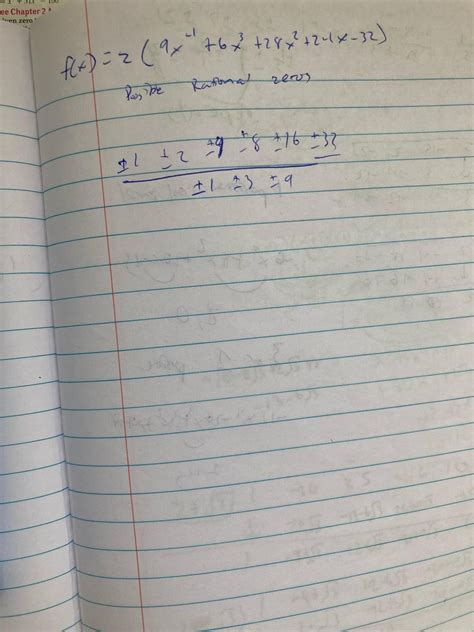 ee Chapter 2
een zero
f(x) = 2 ( 9x⁻¹ + 6x³ + 28x² + 24x - 32 )
Posible Rational zeros
±1 ±2 ±4 ±8 ±16 ±32
±1 ±3 ±9